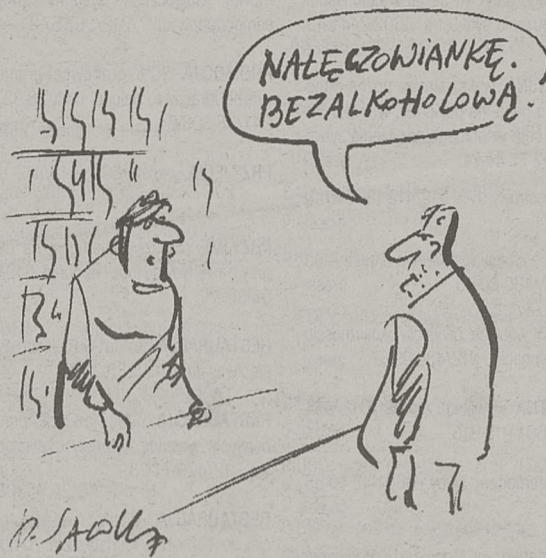 NAŁĘCZOWIANKĘ.
BEZALKOHOLOWĄ.